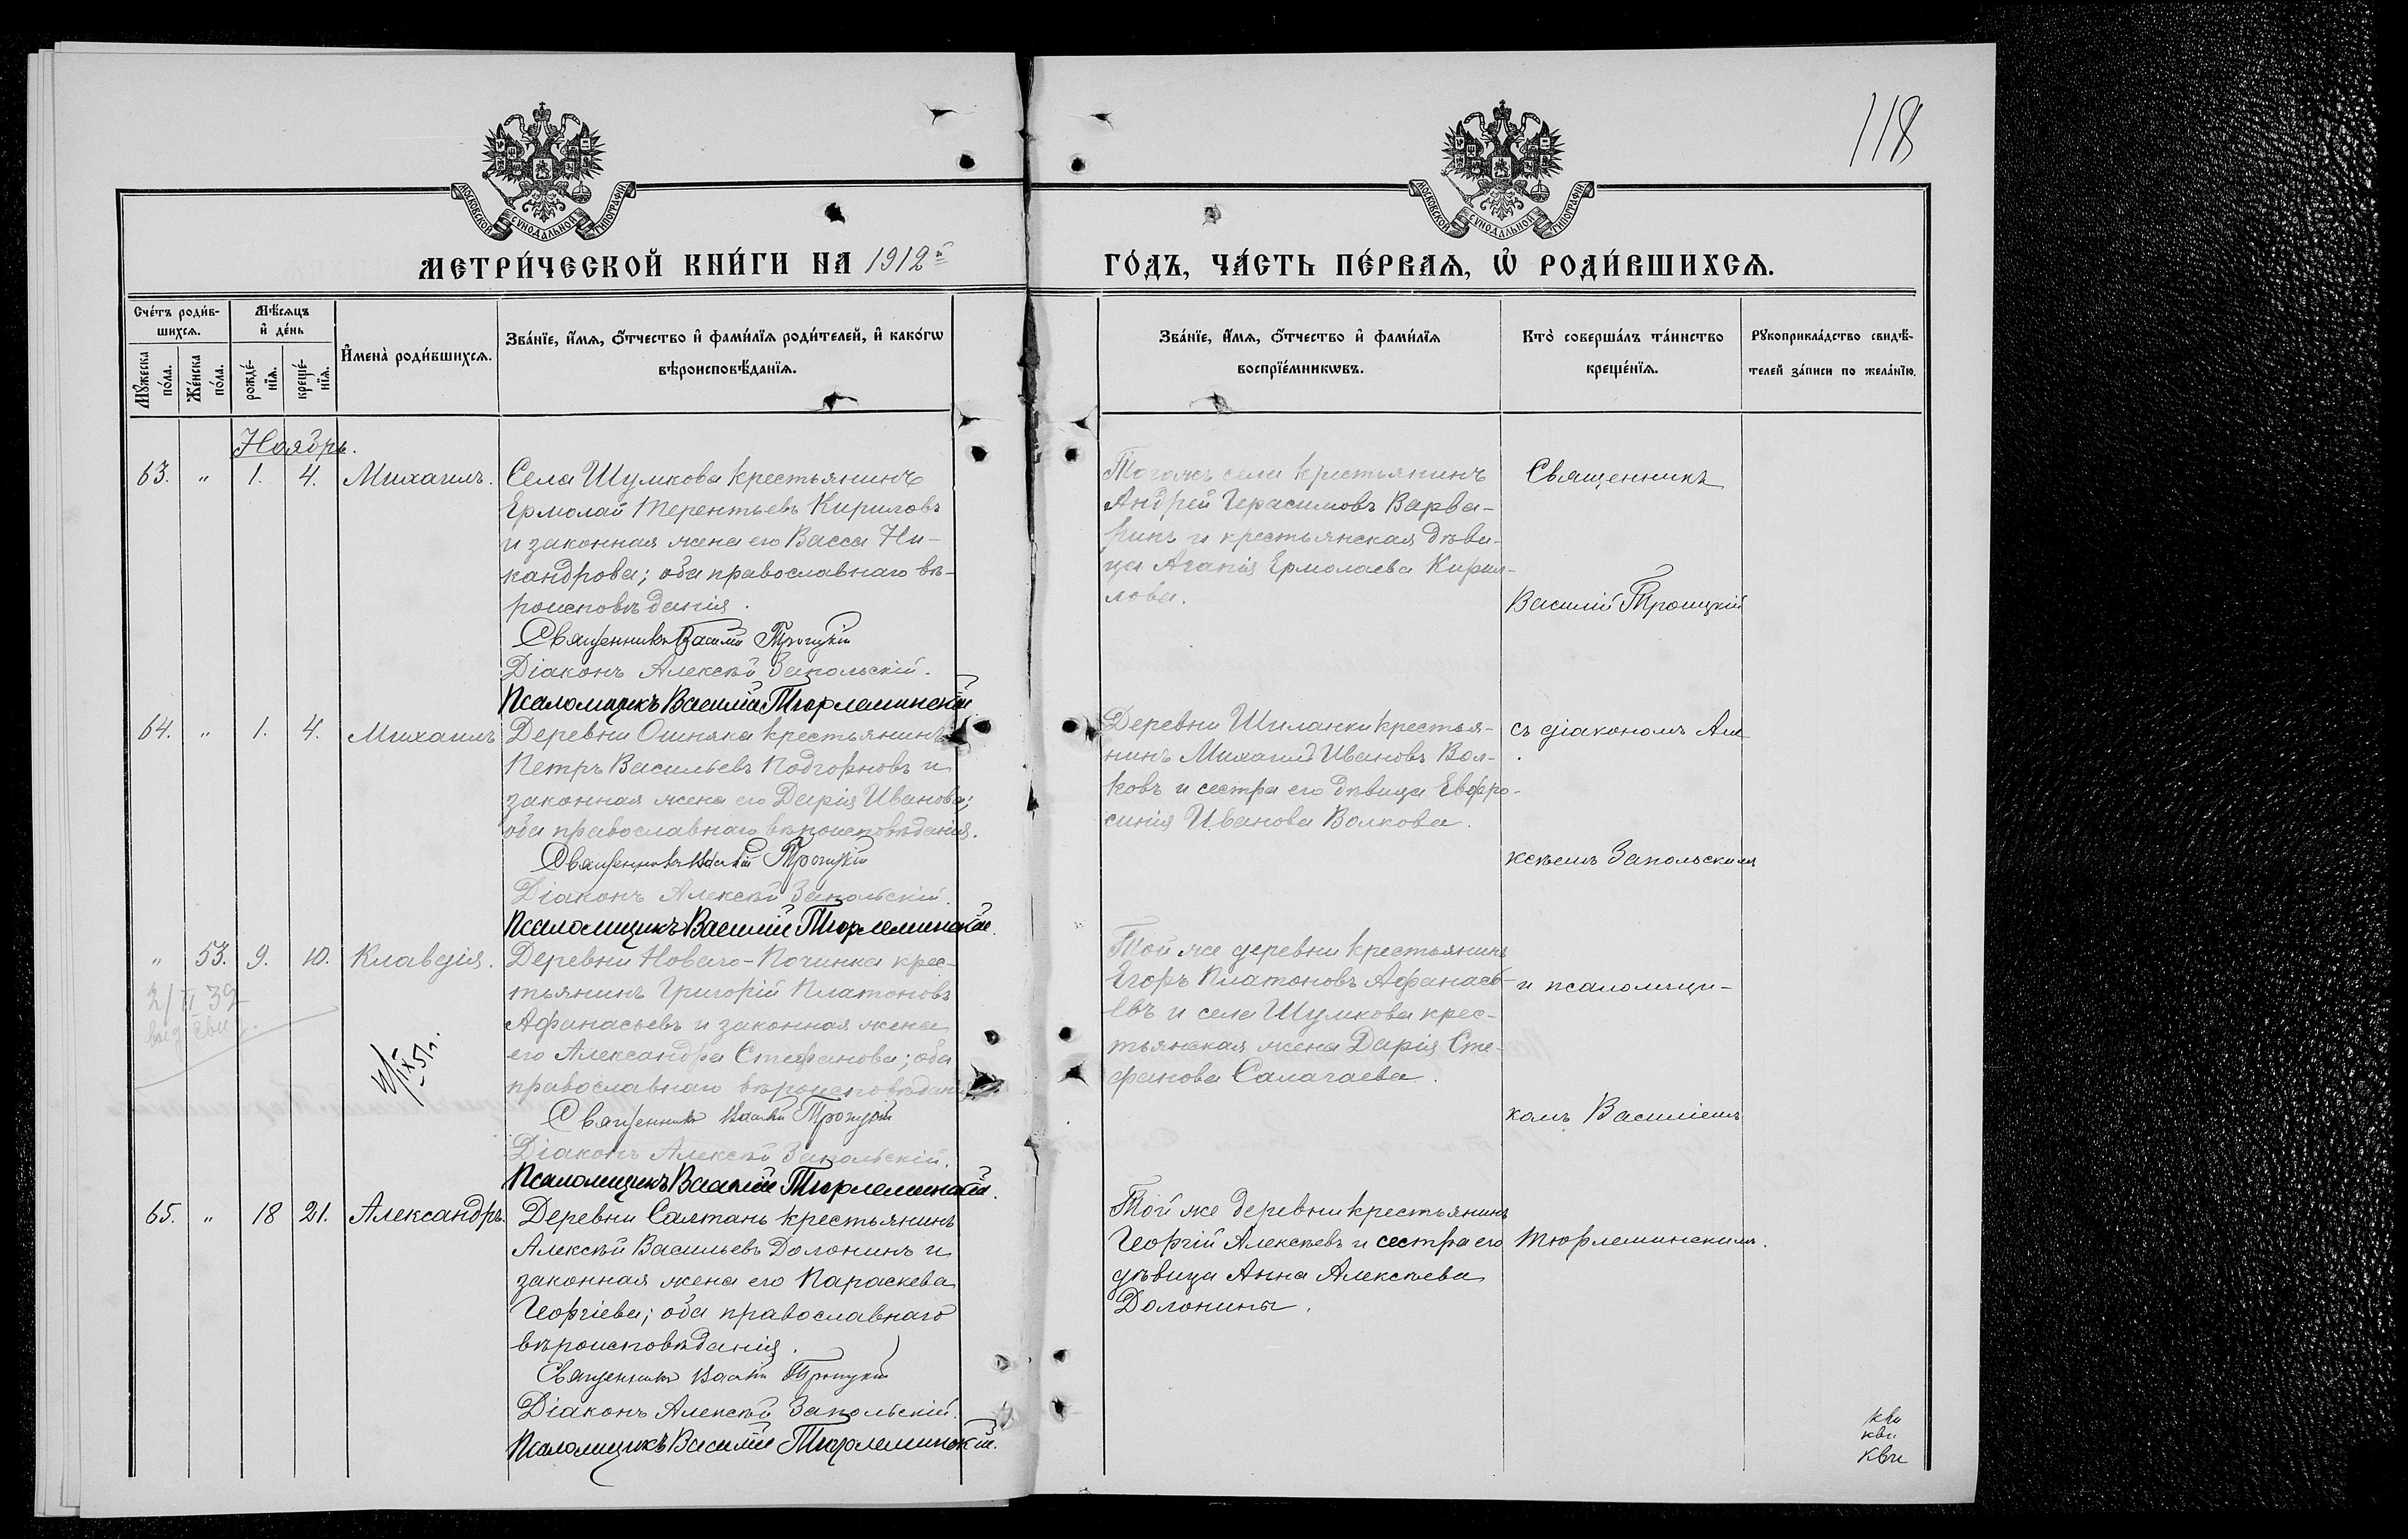 118
МОСКОВСКОЙ СѴНОДАЛЬНОЙ ТИПОГРАФІИ
МОСКОВСКОЙ СѴНОДАЛЬНОЙ ТИПОГРАФІИ
МЕТРИ́ЧЕСКОЙ КНИ́ГИ НА 1912й
ГО́ДЪ, ЧА́СТЬ ПЕ́РВАѦ, Ѡ҆ РОДИ́ВШИХСѦ.
Сче́тъ роди́в-
шихсѧ.
Мꙋ́жеска по́ла.
Же́нска по́ла.
Мѣ́сѧцъ
и҆ де́нь
рожде́-
нїѧ.
креще́-
нїѧ.
И҆мена̀ роди́вшихсѧ.
Зва́нїе, и҆́мѧ, ѻ҆́тчество и҆ фами́лїѧ роди́телей, и҆ како́гѡ
вѣроисповѣ́данїѧ.
Зва́нїе, и҆́мѧ, ѻ҆́тчество и҆ фами́лїѧ
воспрїе́мникѡвъ.
Кто̀ соверша́лъ та́инство
креще́нїѧ.
Рꙋкоприкла́дство свидѣ́-
телей за́писи по жела́нїю.
Ноябрь.
63. " 1. 4. Михаилъ.
Села Шумкова крестьянинъ
Ермолай Терентьевъ Кириловъ
и законная жена его Васса Ни-
кандрова; оба православнаго вѣ-
роисповѣданія.
Священникъ Василій Троицкій
Діаконъ Алексѣй Запольскій.
Псаломщикъ Василій Тюрлеминскій
Тогожъ села крестьянинъ
Андрей Герасимовъ Варва-
ринъ и крестьянская дѣви-
ца Агапія Ермолаева Кирил-
лова.
Священникъ
Василій Троицкій
64. " 1. 4. Михаилъ
Деревни Ошняка крестьянинъ
Петръ Васильевъ Подгорновъ и
законная жена его Дарія Иванова;
оба православнаго вѣроисповѣданія.
Священникъ Василій Троицкій
Діаконъ Алексѣй Запольскій.
Псаломщикъ Василій Тюрлеминскій.
Деревни Шиланки крестья-
нинъ Михаилъ Ивановъ Вол-
ковъ и сестра его дѣвица Евфро-
синія Иванова Волкова.
съ діакономъ Але-
ксѣемъ Запольскимъ
" 53. 9. 10. Клавдія.
2/II 39
Деревни Новаго-Починка крес-
тьянинъ Григорій Платоновъ
Афанасьевъ и законная жена
его Александра Стефанова; оба
православнаго вѣроисповѣданія.
Священникъ Василій Троицкій
Діаконъ Алексѣй Запольскій.
Псаломщикъ Василій Тюрлеминскій.
Той же деревни крестьянинъ
Егоръ Платоновъ Афанась-
евъ и села Шумкова крес-
тьянская жена Дарія Сте-
фанова Салагаева.
и псаломщи-
комъ Василіемъ
65. " 18 21. Александръ.
Деревни Салтанъ крестьянинъ
Алексѣй Васильевъ Долонинъ и
законная жена его Параскева
Георгіева; оба православнаго
вѣроисповѣданія.
Священникъ Василій Троицкій
Діаконъ Алексѣй Запольскій.
Псаломщикъ Василій Тюрлеминскій.
Той же деревни крестьянинъ
Георгій Алексѣевъ и сестра его
дѣвица Анна Алексѣева
Долонины.
Тюрлеминскимъ.